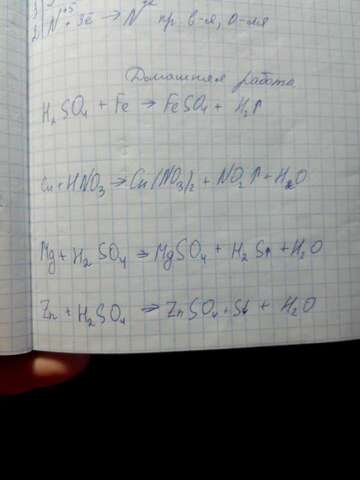 2) N⁺⁵ + 3ē → N⁺² пр. в-я, о-ля
Домашняя работа
H₂SO₄ + Fe → FeSO₄ + H₂↑
Cu + HNO₃ → Cu(NO₃)₂ + NO₂↑ + H₂O
Mg + H₂SO₄ → MgSO₄ + H₂S↑ + H₂O
Zn + H₂SO₄ → ZnSO₄ + S↓ + H₂O